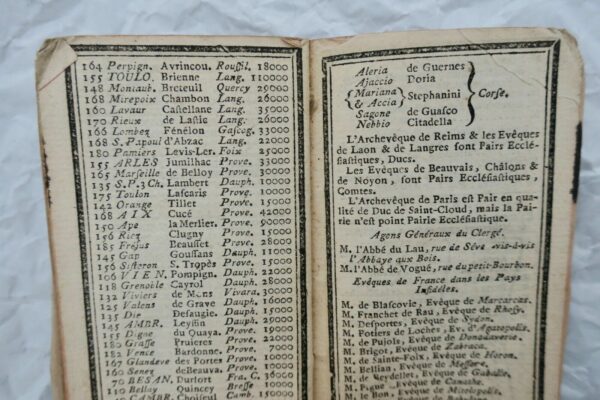 164 Perpign. Avrincou. Roussil. 18000
155 TOULO. Brienne Lang. 110000
148 Montaub. Breteuil Quercy 29000
168 Mirepoix Chambon Lang. 26000
160 Lavaur Castellane Lang. 35000
170 Rieux de Lastic Lang. 26000
166 Lombez Fénélon Gascog. 33000
168 S. Papoul d'Abzac Lang. 22000
180 Pamiers Levis-Ler. Foix 25000
155 ARLES Jumilhac Prove. 33000
165 Marseille de Belloy Prove. 30000
135 S.P.3 Ch. Lambert Dauph. 10000
175 Toulon Lascaris Prove. 10000
142 Orange Tillet Prove. 15000
168 A I X Cucé Prove. 42000
150 Ape la Merlier. Prove. 9000
156 Riez Clugny Prove. 15000
185 Fréjus Beausset Prove. 28000
145 Gap Goussans Dauph. 11000
156 Sisteron S. Tropès Prove. 15000
106 V I E N. Pompign. Dauph. 22000
118 Grenoble Cayrol Dauph. 28000
132 Viviers de Mons Vivara. 30000
125 Valens de Grave Dauph. 16000
135 Die Desaugie. Dauph. 15000
145 AMBR. Leyssin Dauph.
155 Digne du Quaya. Prove.
180 Grasse Pruieres Prove. 22000
182 Vence Bardonne. Prove. 7000
167 Glandeve des Portes Prove. 10000
160 Senez deBeauva. Prove. 10000
70 BESAN. Durfort Fra. C. 36000
110 Bellay Quincey Bresse 10000
CAMBR. Choiseul Camb. 150000
Aleria de Guernes
Ajaccio Doria
Mariana
& Accia Stephanini Corse.
Sagone de Guasco
Nebbio Citadella
L'Archevêque de Reims & les Evêques
de Laon & de Langres sont Pairs Ecclé-
siastiques, Ducs.
Les Evêques de Beauvais, Châlons &
de Noyon, sont Pairs Ecclésiastiques,
Comtes.
L'Archevêque de Paris est Pair en qua-
lité de Duc de Saint-Cloud, mais la Pai-
rie n'est point Pairie Ecclésiastique.
Agens Généraux du Clergé.
M. l'Abbé du Lau, rue de Séve vis-à-vis
l'Abbaye aux Bois.
M. l'Abbé de Vogué, rue du petit-Bourbon.
Evêques de France dans les Pays
Infidèles.
M. de Blascovie, Evêque de Marcarcas.
M. Franchet de Rau, Evêque de Rhosy.
M. Desportes, Evêque de Sydon.
M. Potiers de Loches, Ev. d'Agatopolis.
M. de Pujols, Evêque de Donadaverie.
M. Brigot, Evêque de Tabraca.
M. de Sainte-Foix, Evêque de Horon.
M. Bellian, Evêque de Messere.
M. de Reydellet, Evêque de Gabulle.
M. Pigue, Evêque de Canathe.
M. le Bon, Evêque de